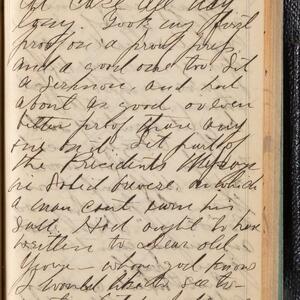 at case all day
lazy. Took my first
proof on a proof press,
and a good one too. Set
a sermon, and had
about as good or even
better proof than any
Set part of
the Presidents Message
in solid brevier on which
a man cant earn his
salt. Had ought to have
written to dear old
George whom god knows
I would like to see